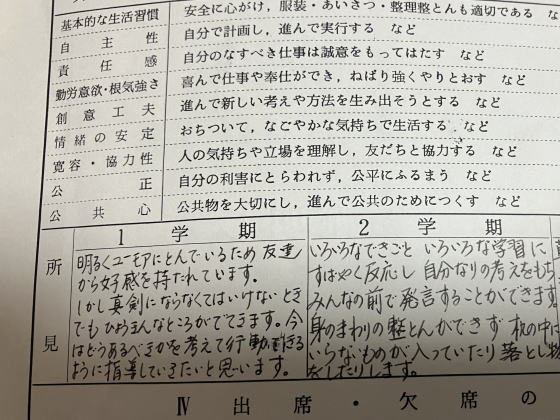 基本的な生活習慣 安全に心がけ，服装・あいさつ・整理整とんも適切である な
自主性 自分で計画し，進んで実行する など
責任感 自分のなすべき仕事は誠意をもってはたす など
勤労意欲・根気強さ 喜んで仕事や奉仕ができ，ねばり強くやりとおす など
創意工夫 進んで新しい考えや方法を生み出そうとする など
情緒の安定 おちついて，なごやかな気持ちで生活する など
寛容・協力性 人の気持ちや立場を理解し，友だちと協力する など
公正 自分の利害にとらわれず，公平にふるまう など
公共心 公共物を大切にし，進んで公共のためにつくす など
所見
1 学期
明るくユーモアにとんでいるため 友達
から好感を持たれています。
しかし真剣にならなくてはいけないとき
でも ひょうきんなところがでてきます。今
はどうあるべきかを考えて行動できる
ように指導していきたいと思います。
2 学期
いろいろなできごと いろいろな学習に
すばやく反応し 自分なりの考えをもち
みんなの前で発言することができます
身のまわりの整とんができず 机の中に
いらないものが入っていたり 落とし物
をしたりします。
Ⅳ 出席・欠席の